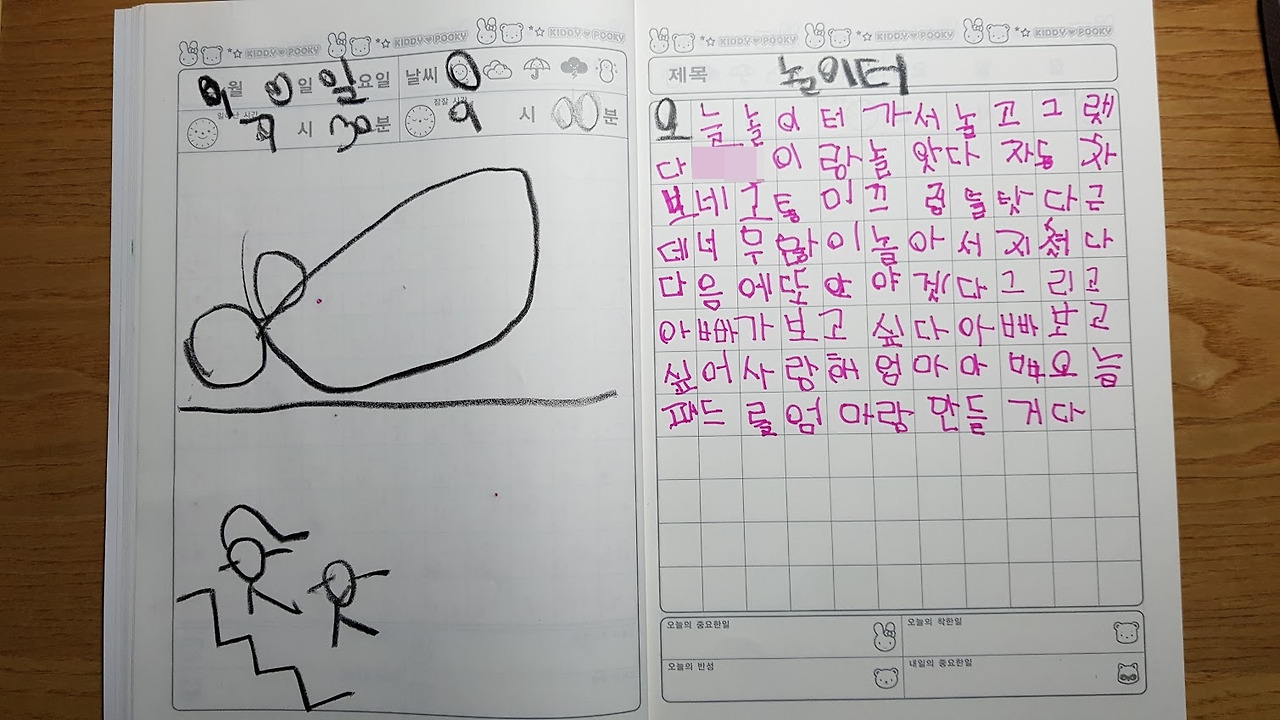 KIDDY♥POOKY KIDDY♥POOKY KIDDY♥POOKY
9월 0일 일요일 날씨
일어난 시각 7시 30분 잠잘 시각 9시 00분
KIDDY♥POOKY KIDDY♥POOKY KIDDY♥POOKY
제목 놀이터
오늘놀이터가서놀고그랫
다 이랑놀앗다자동차
보네고 끄럼틀탓다근
데너무많이놀아서지쳤다
다음에또 그리고
아빠가보고싶다아빠보고
싶어사랑해엄마아빠오늘
패드를엄마랑만들거다
오늘의 중요한일 오늘의 착한일
오늘의 반성 내일의 중요한일